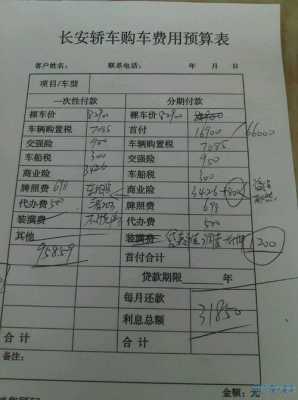 长安轿车购车费用预算表
客户姓名： 联系电话： 年 月 日
项目/车型
一次性付款 分期付款
裸车价 82900 裸车价 82900
车辆购置税 7085 首付 16900 /66000
交强险 950 车辆购置税 7085
车船税 300 交强险 950
商业险 3426 车船税 300
牌照费 698 商业险 3426+800
代办费 500 牌照费 698
装潢费 代办费 500
其他 装潢费 200
95859 首付合计
贷款期限 年
每月还款
利息总额 31850
合计 合计
备注：
金额：元